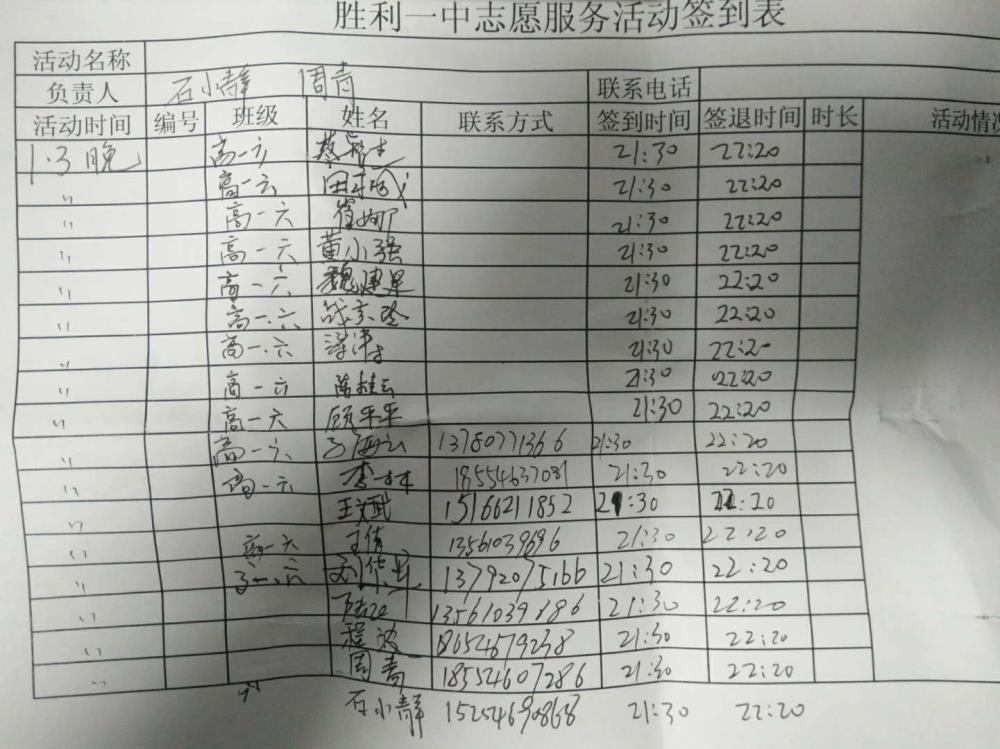 胜利一中志愿服务活动签到表
活动名称
负责人 石小静 周青 联系电话
活动时间 编号 班级 姓名 联系方式 签到时间 签退时间 时长 活动情况
1.3晚 高一六 21:30 22:20
〃 高一六 21:30 22:20
〃 高一六 崔娜 21:30 22:20
〃 高一六 黄小强 21:30 22:20
〃 高一六 魏建军 21:30 22:20
〃 高一六 21:30 22:20
〃 高一六 21:30 22:20
〃 高一六 陈桂云 21:30 22:20
〃 高一六 顾平平 21:30 22:20
〃 高一六 13780771366 21:30 22:20
〃 高一六 李林 18554637081 21:30 22:20
〃 王文武 15166211852 21:30 22:20
〃 高一六 王倩 21:30 22:20
〃 高一六 13792075166 21:30 22:20
〃 13561039886 21:30 22:20
〃 程波 18654679238 21:30 22:20
〃 周青 18554607286 21:30 22:20
〃 石小静 15254690868 21:30 22:20